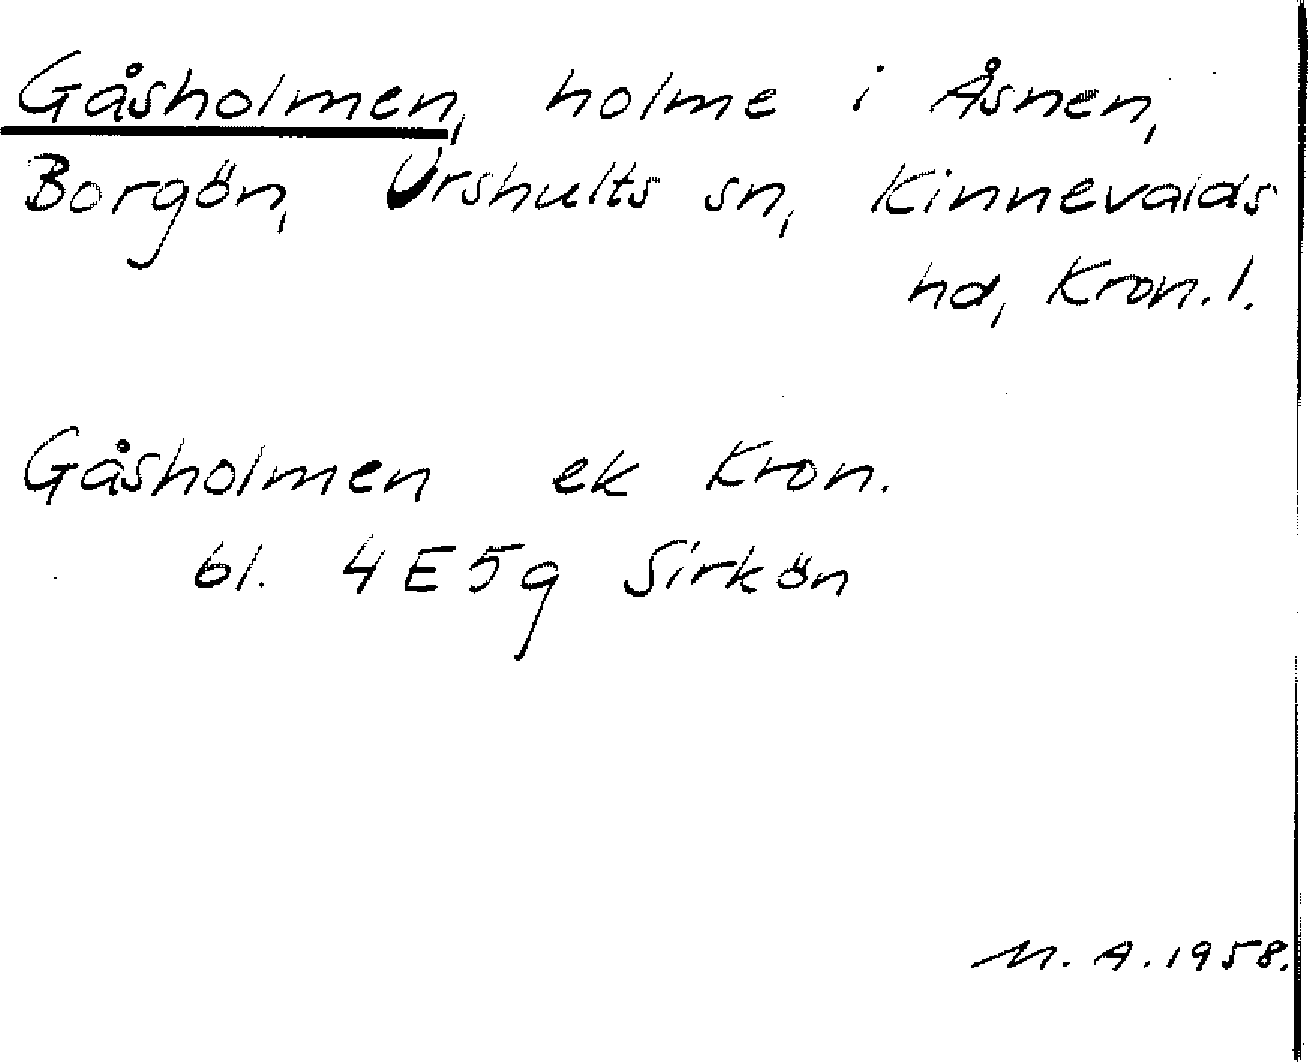 Gåsholmen, holme i Åsnen,
Borgön, Urshults sn, Kinnevalds
hd, Kron. l.
Gåsholmen ek Kron.
bl. 4E5g Sirkön
M. A. 1958.